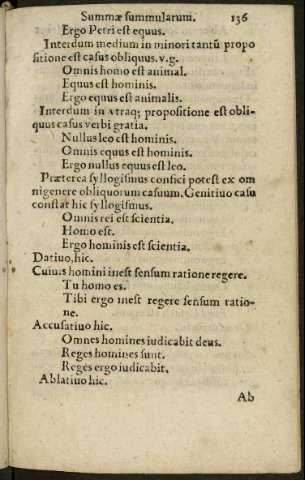 Summæ summularum. 136
Ergo Petri est equus.
Interdum medium in minori tantũ propo
sitione est casus obliquus. v.g.
Omnis homo est animal.
Equus est hominis.
Ergo equus est animalis.
Interdum in vtraq; propositione est obli-
quus casus verbi gratia.
Nullus leo est hominis.
Omnis equus est hominis.
Ergo nullus equus est leo.
Præterea syllogismus confici potest ex om
ni genere obliquorum casuum. Genitiuo casu
constat hic syllogismus.
Omnis rei est scientia.
Homo est.
Ergo hominis est scientia.
Datiuo, hic.
Cuiuis homini inest sensum ratione regere.
Tu homo es.
Tibi ergo inest regere sensum ratio-
ne.
Accusatiuo hic.
Omnes homines iudicabit deus.
Reges homines sunt.
Reges ergo iudicabit.
Ablatiuo hic.
Ab